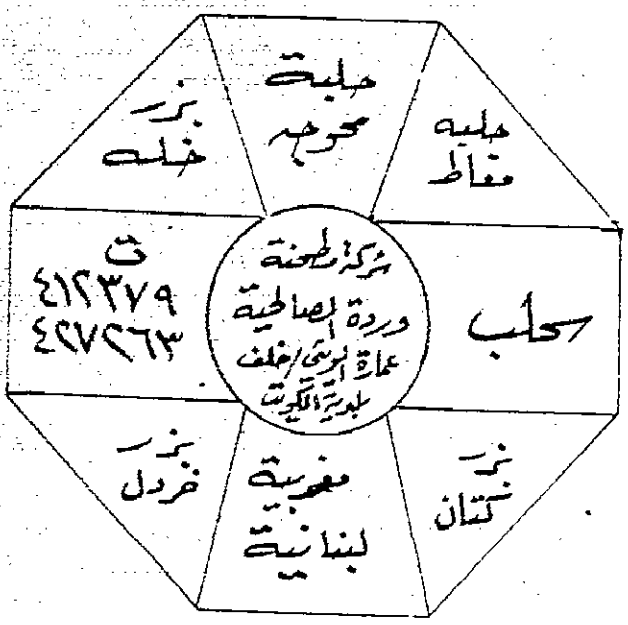 حلبة
محوجه
حلبه
مقاط
سحلب
بزر
كتان
مغربية
لبنانية
بزر
خردل
ت
٤١٢٣٧٩
٤٢٧٢٦٣
بزر
خله
شركة مطحنة
وردة الصالحية
عمارة / خلف
بلدية الكويت